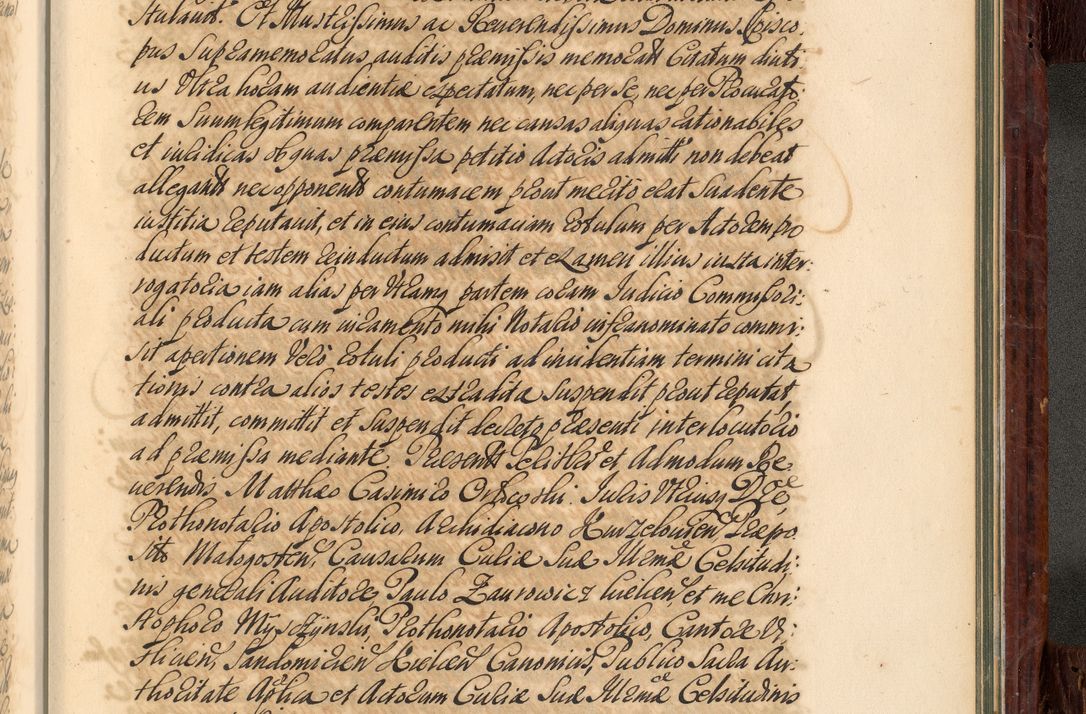 stulavit. Et Illustrissimus ac Reverendissimus Dominus Episco-
pus supramemoratus auditis præmissis memorat Citatum diuti-
us Ultra horam audientiæ expectatum, nec per se, nec per Procurato-
rem suum legitimum comparentem nec causas aliquas rationabiles
et iuridicas ob quas præmissa petitio Actoris admitti non debeat
allegant nec opponent contumacem prout merito erat suadente
iustitia reputavit, et in eius contumaciam rotulum per Actorem pro
ductum et testem reinductum admisit et examen illius iuxta inter:
rogatoria iam alias per Utramq partem coram Iudicio Commissori:
ali producta cum iuramento mihi Notario infranominato commi-
sit apertionem Vero rotuli producti ad incidentiam termini cita
tionis contra alios testes extradita suspendit prout reputat,
admittit, committit et suspendit decreto præsenti interlocutorio
ad præmissa mediante. Præsent Perillri et Admodum Re
verendis Matthæo Casimiro Orlewski Iuris Utriusq Dre,
Prothonotario Apostolico, Archidiacono Kurzeloven Præpo
sito Malogosten, Causarum Curiæ Suæ Illmæ Celsitudi:
nis generali Auditore Paulo Zaurowicz Kielcen, et me Chri:
stophoro Myszynski, Prothonotario Apostolico, Cantore Vi:
slicien, Sandomirien Kielcen Canonicis, Publico Sacra Au-
thoritate Aplica et Actorum Curiæ Suæ Illmæ Celsitudinis